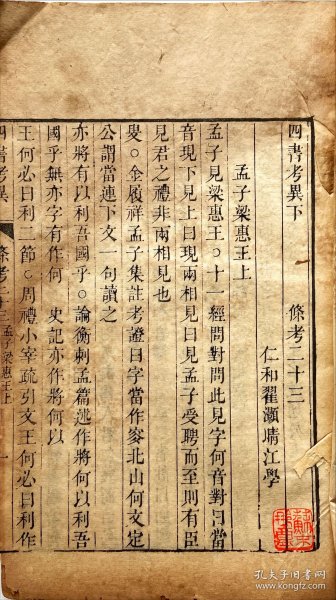 四書考異下　條考二十三
仁和翟灝晴江學
孟子梁惠王上
孟子見梁惠王○十一經問對問此見字何音對曰當
音現下見上曰現兩相見曰見孟子受聘而至則有臣
見君之禮非兩相見也
叟○金履祥孟子集註考證曰字當作叜北山何文定
公謂當連下文一句讀之
亦將有以利吾國乎○論衡刺孟篇述作將何以利吾
國乎無亦字有作何　史記亦作將何以
王何必曰利二節○周禮小宰疏引文王何必曰利作
四書考異　條考二十三 孟子梁惠王上　一
孔夫子旧书网